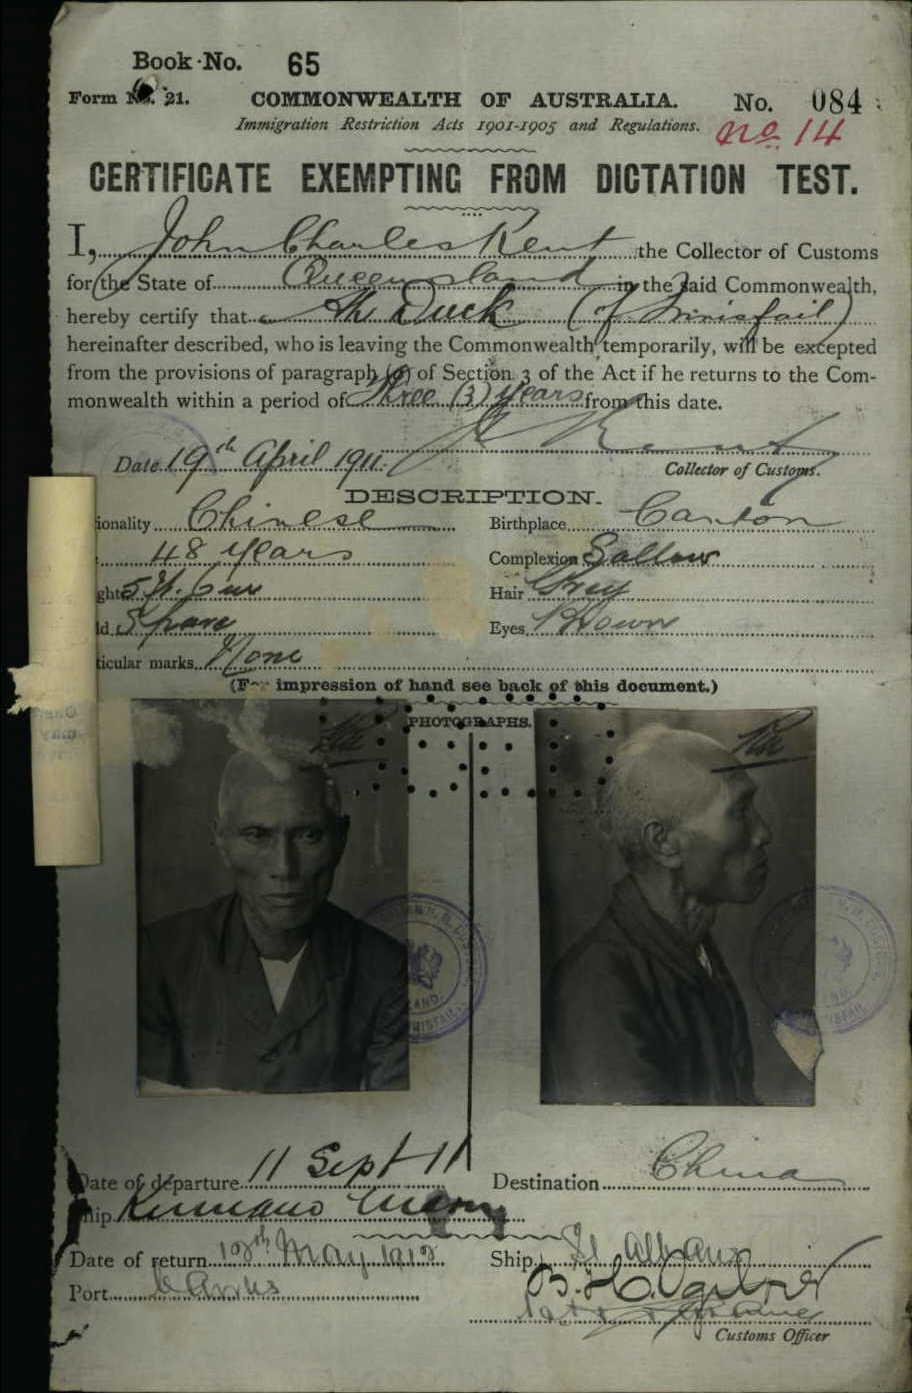 Book No. 65
Form No. 21. COMMONWEALTH OF AUSTRALIA. No. 084
Immigration Restriction Acts 1901-1905 and Regulations. No. 14
CERTIFICATE EXEMPTING FROM DICTATION TEST.
I, John Charles Kent the Collector of Customs
for the State of Queensland in the said Commonwealth,
hereby certify that Ah Duck (of Innisfail)
hereinafter described, who is leaving the Commonwealth temporarily, will be excepted
from the provisions of paragraph of Section 3 of the Act if he returns to the Com-
monwealth within a period of Three (3) Years from this date.
Kent
Date 19th April 1911. Collector of Customs.
DESCRIPTION.
ionality Chinese Birthplace Canton
48 Years Complexion Sallow
ght 5 ft. Hair Grey
ld Spare Eyes Brown
ticular marks None
(For impression of hand see back of this document.)
PHOTOGRAPHS.
Date of departure 11 Sept 11 Destination China
hip Kumano Maru
Date of return May 1912 Ship St Albans
Port Cairns
Customs Officer